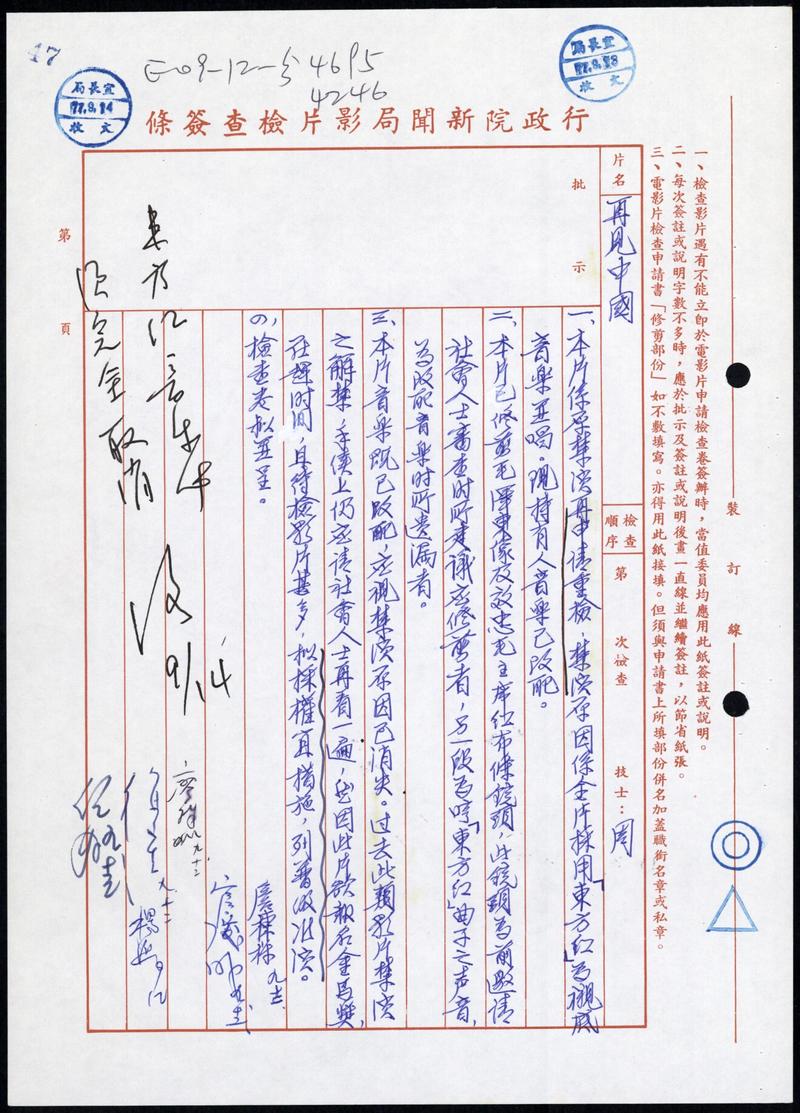 47
E09-12-3 4695
4246
宣長局
77.9.14
收文
宣長局
77.9.13
收文
行政院新聞局影片檢查簽條
一、檢查影片遇有不能立即於電影片申請檢查卷簽辦時，當值委員均應用此紙簽註或說明。
二、每次簽註或說明字數不多時，應於批示及簽註或說明後畫一直線並繼續簽註，以節省紙張。
三、電影片檢查申請書「修剪部份」如不敷填寫。亦得用此紙接填。但須與申請書上所填部份併名加蓋職銜名章或私章。
裝訂線
片名
再見中國
檢查順序
第 次檢查
技士：周
批示
一、本片係原禁演再申請重檢，禁演原因係全片採用「東方紅」為襯底
音樂並唱。現持有人音樂已改配。
二、本片已修剪毛澤東像及效忠毛主席紅布條鏡頭，此鏡頭為前邀請
社會人士審查時所建議應修剪者，另一段為哼「東方紅」曲子之声音，
為改配音樂時所遺漏者。
三、本片音樂既已改配，应視禁演原因已消失。过去此類影片禁演
之解禁，手續上仍应請社會人士再看一遍，茲因此片欲報名金馬獎，
在趕时间，且待檢影片甚多，擬採權宜措施，列普級准演。
四、檢查表擬並呈。
東方紅音樂
須完全取消
9/14
第 頁
九、十二